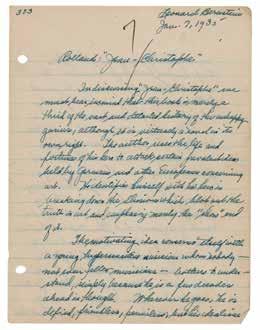 353
Leonard Bernstein
Jan. 7, 1935
Rolland's "Jean-Christophe"
In discussing "Jean-Christophe" we
must bear in mind that this book is merely a
third of the vast and detailed history of this unhappy
genius, although it is virtually a novel in its
own right. The author uses the life and
fortunes of his hero to attack certain false ideas
held by Germans and other Europeans concerning
art. He identifies himself with his hero in
breaking down the illusions which blot out the
truth in art and emphasize merely the "glow" end
of it.
The motivating idea concerns itself with
a young, hypersensitive musician whom nobody —
not even fellow musicians — bothers to under-
stand, simply because he is a few decades
ahead in thought. Wherever he goes, he is
defied, friendless, penniless, but his idealism